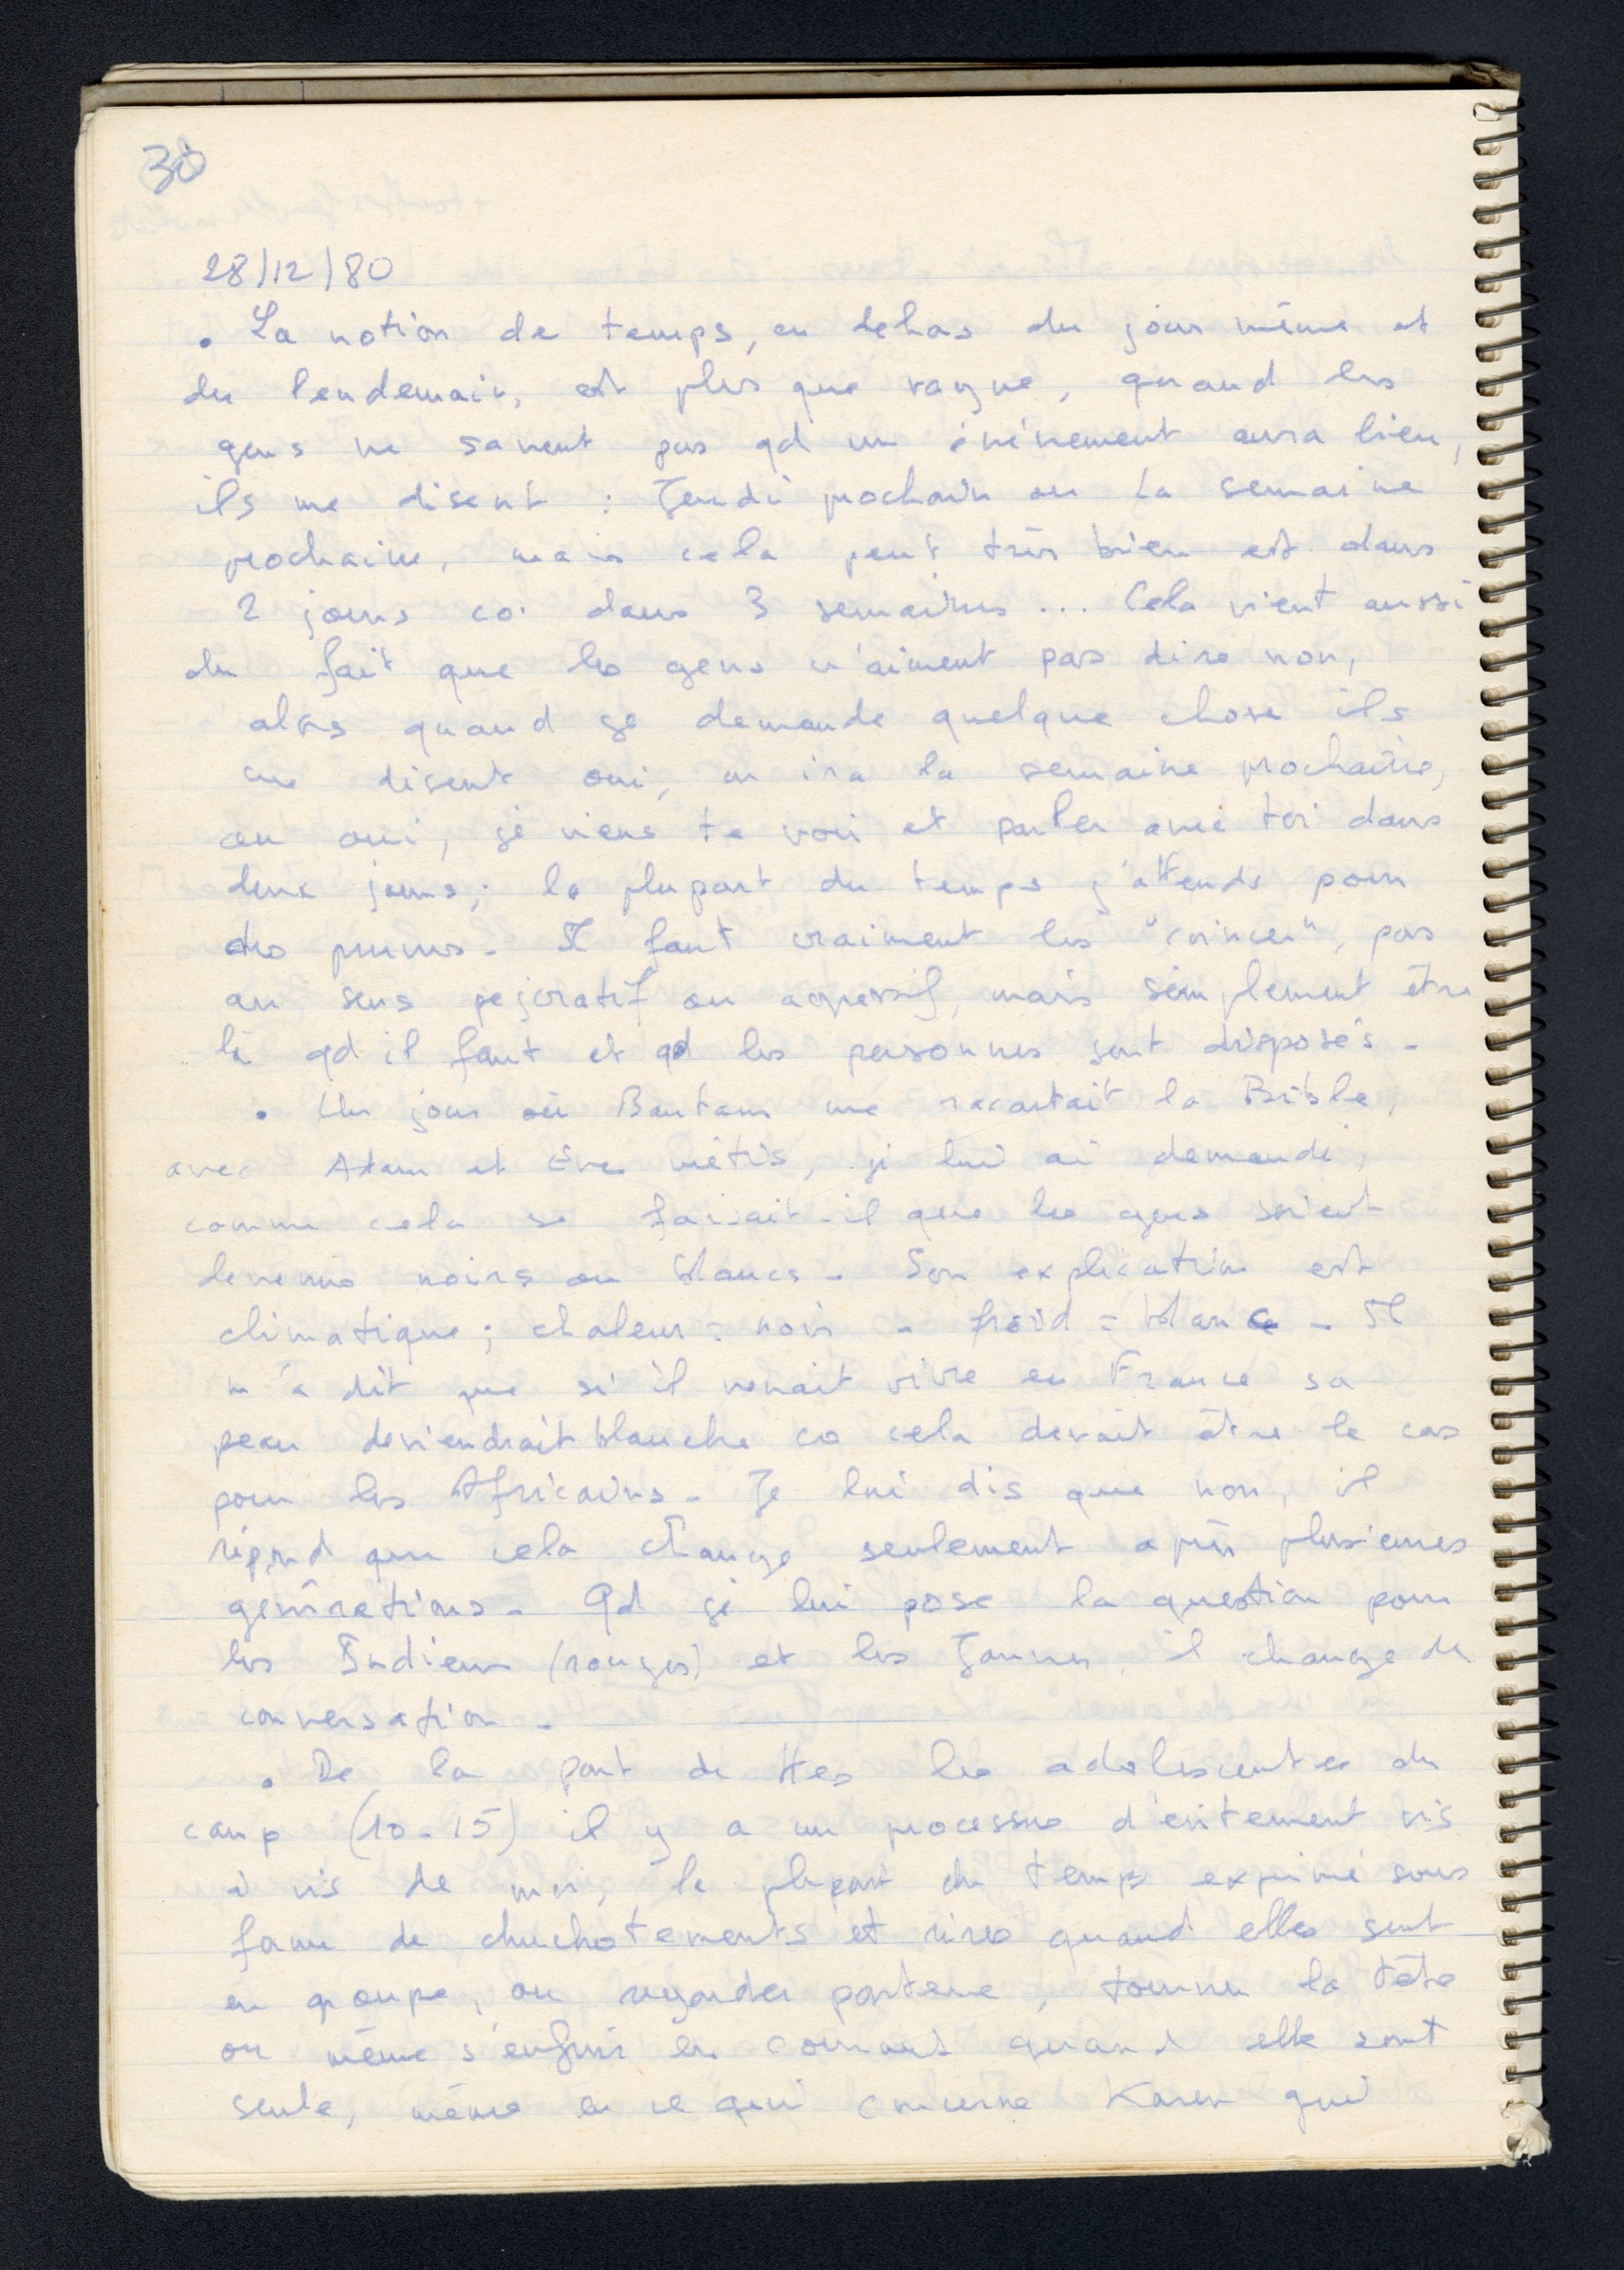 30
28/12/80
. La notion de temps, en dehors du jour même et
du lendemain, est plus que vague, quand les
gens ne savent pas qd un événement aura lieu,
ils me disent : Jeudi prochain ou la semaine
prochaine, mais cela peut très bien est dans
2 jours co. dans 3 semaines ... Cela vient aussi
du fait que les gens n'aiment pas dire non,
alors quand je demande quelque chose ils
me disent oui, on ira la semaine prochaine,
ou oui, je viens te voir et parler avec toi dans
deux jours ; la plupart du temps j'attends pour
des prunes - Il faut vraiment les "coincer", pas
au sens pejoratif ou agressif, mais simplement être
là qd il faut et qd les personnes sont disposés -
. Un jour où Bantam me racontait la Bible,
avec Adam et Eve métis, je lui ai demandé,
comme cela se faisait-il que les gens soient
devenus noirs ou blancs - Son explication est
climatique ; chaleur = noir - froid = blanc - Il
m'a dit que si il venait vivre en France sa
peau deviendrait blanche co cela devait être le cas
pour les Africains - Je lui dis que non, il
répond que cela change seulement après plusieures
générations - Qd je lui pose la question pour
les Indiens (rouges) et les Jaunes, il change de
conversation -
. De la part de ttes les adolescentes du
camp (10-15) il y a un processus d'évitement vis
à vis de moi, la plupart du temps exprimé sous
forme de chuchotements et rires quand elles sont
en groupe, ou regarder parterre, tourner la tête
ou même s'enfuir en courant quand elle sont
seule, même en ce qui concerne Karen qui